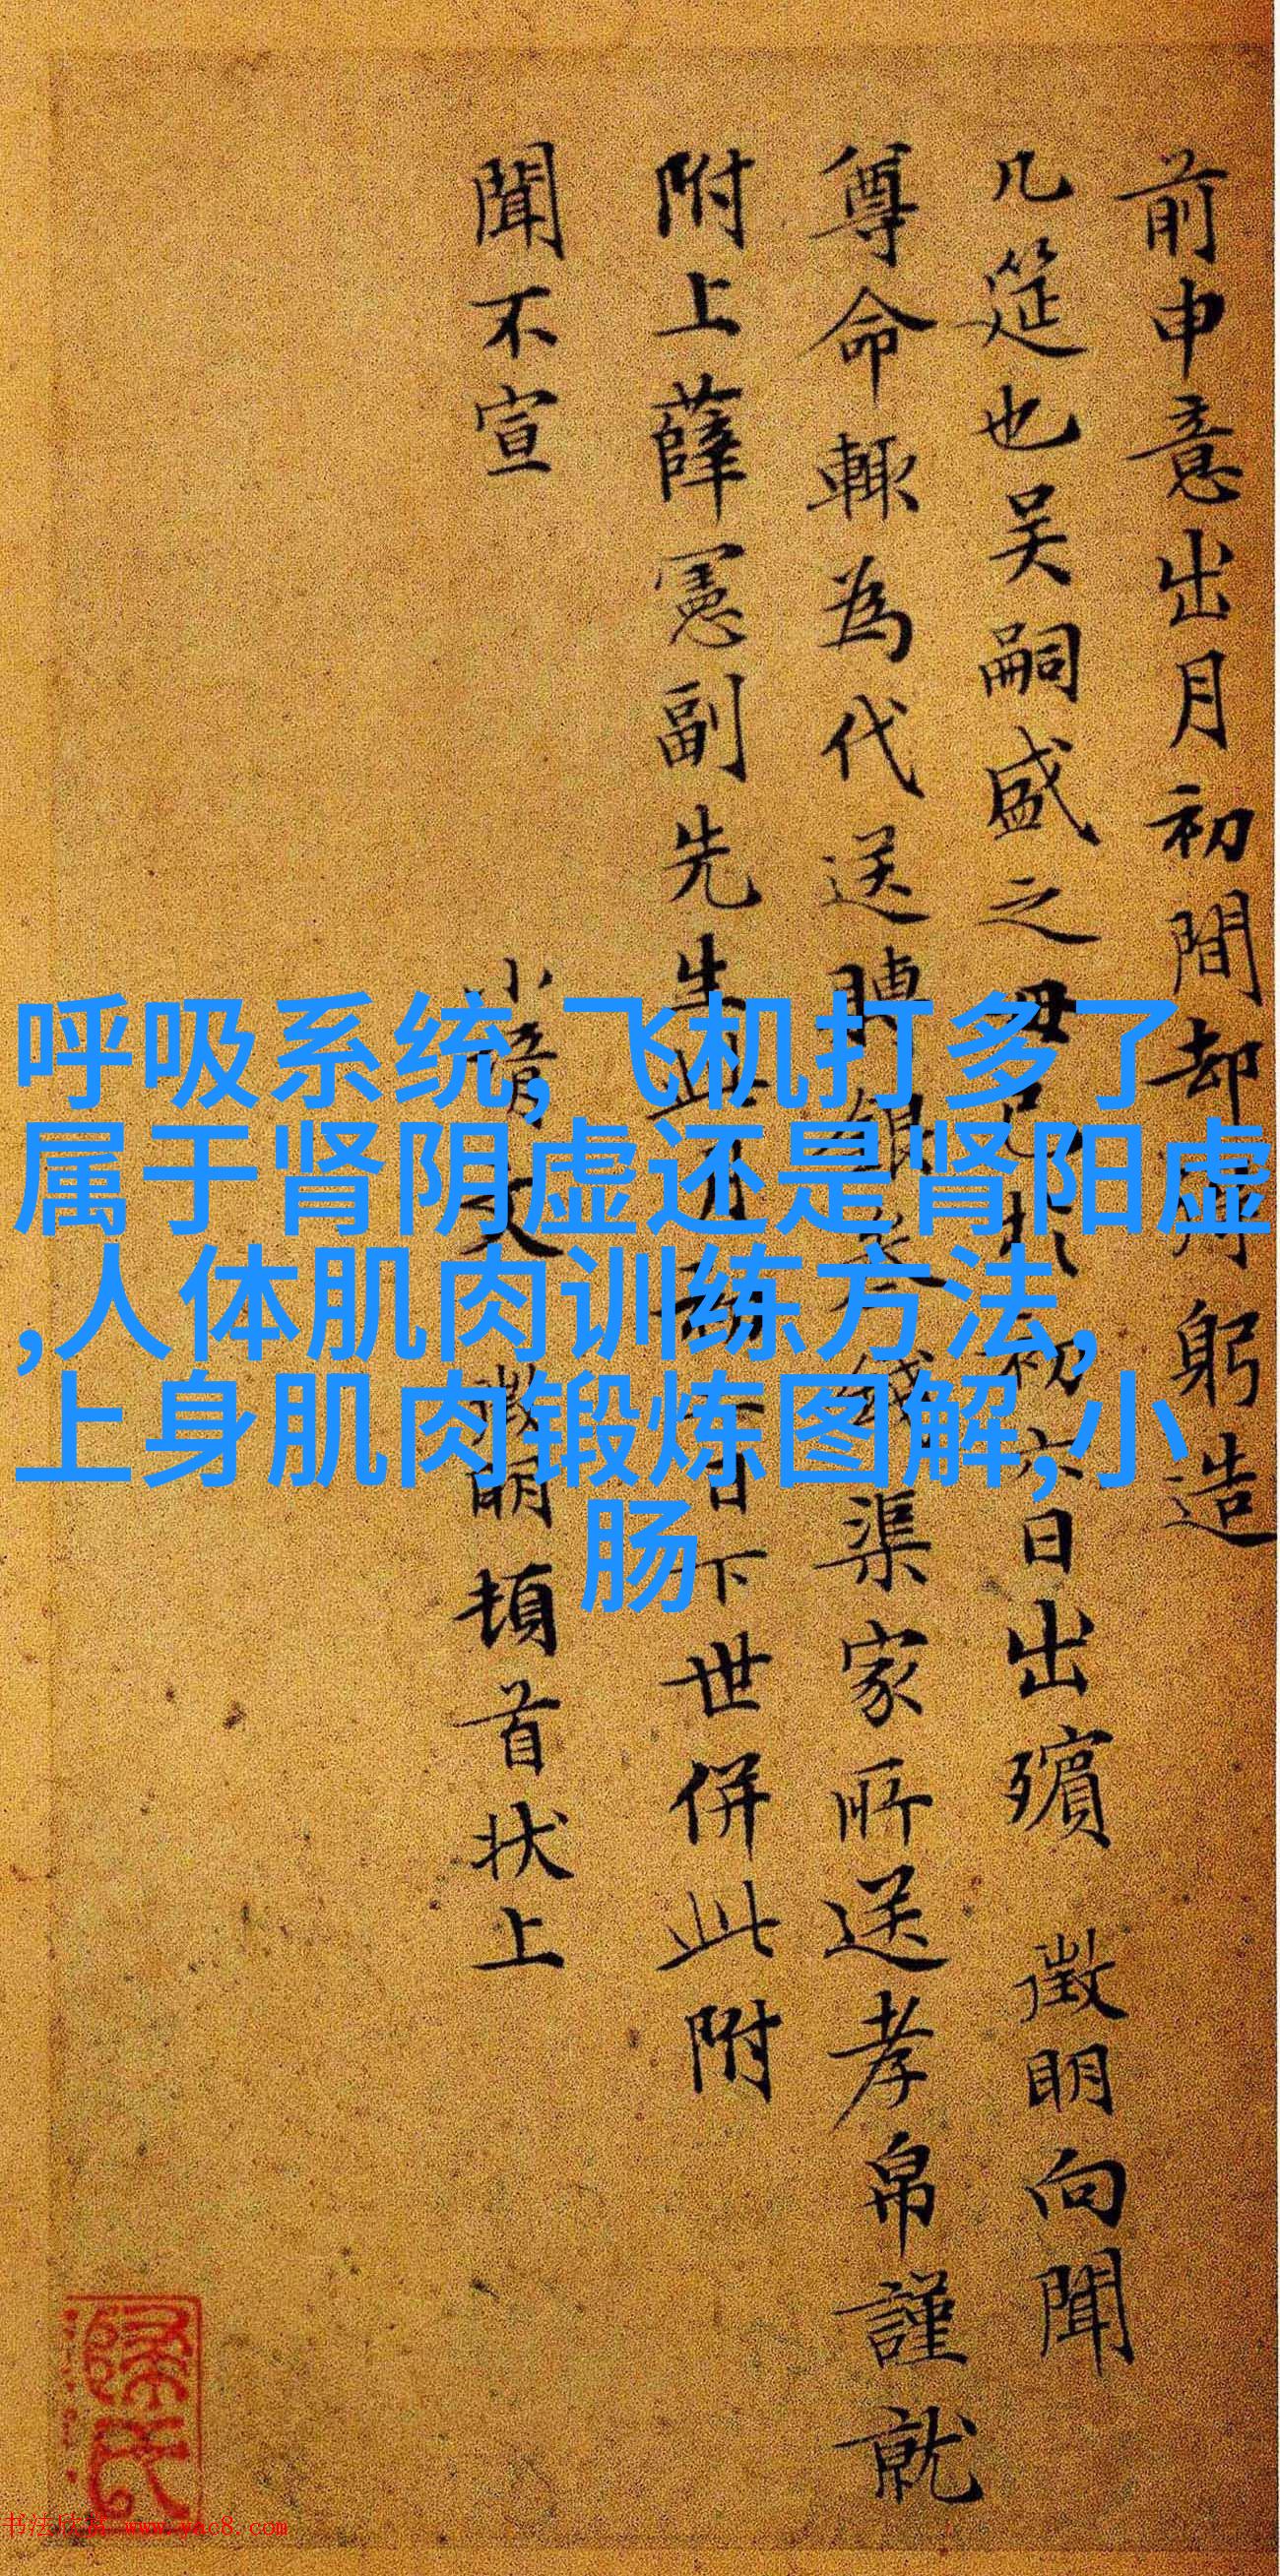 前申意出月初間却
躬造
几筵也吴嗣盛之母
初六日出殯 徵明向聞
尊命輙為代送
渠家所送孝帛謹就
附上薛憲副先生此
日下世併此附
聞不宣
頓首状上
呼吸系统,飞机打多了
属于肾阴虚还是肾阳虚
,人体肌肉训练方法,
上身肌肉锻炼图解,小
肠
书法欣赏 www.yac8.com